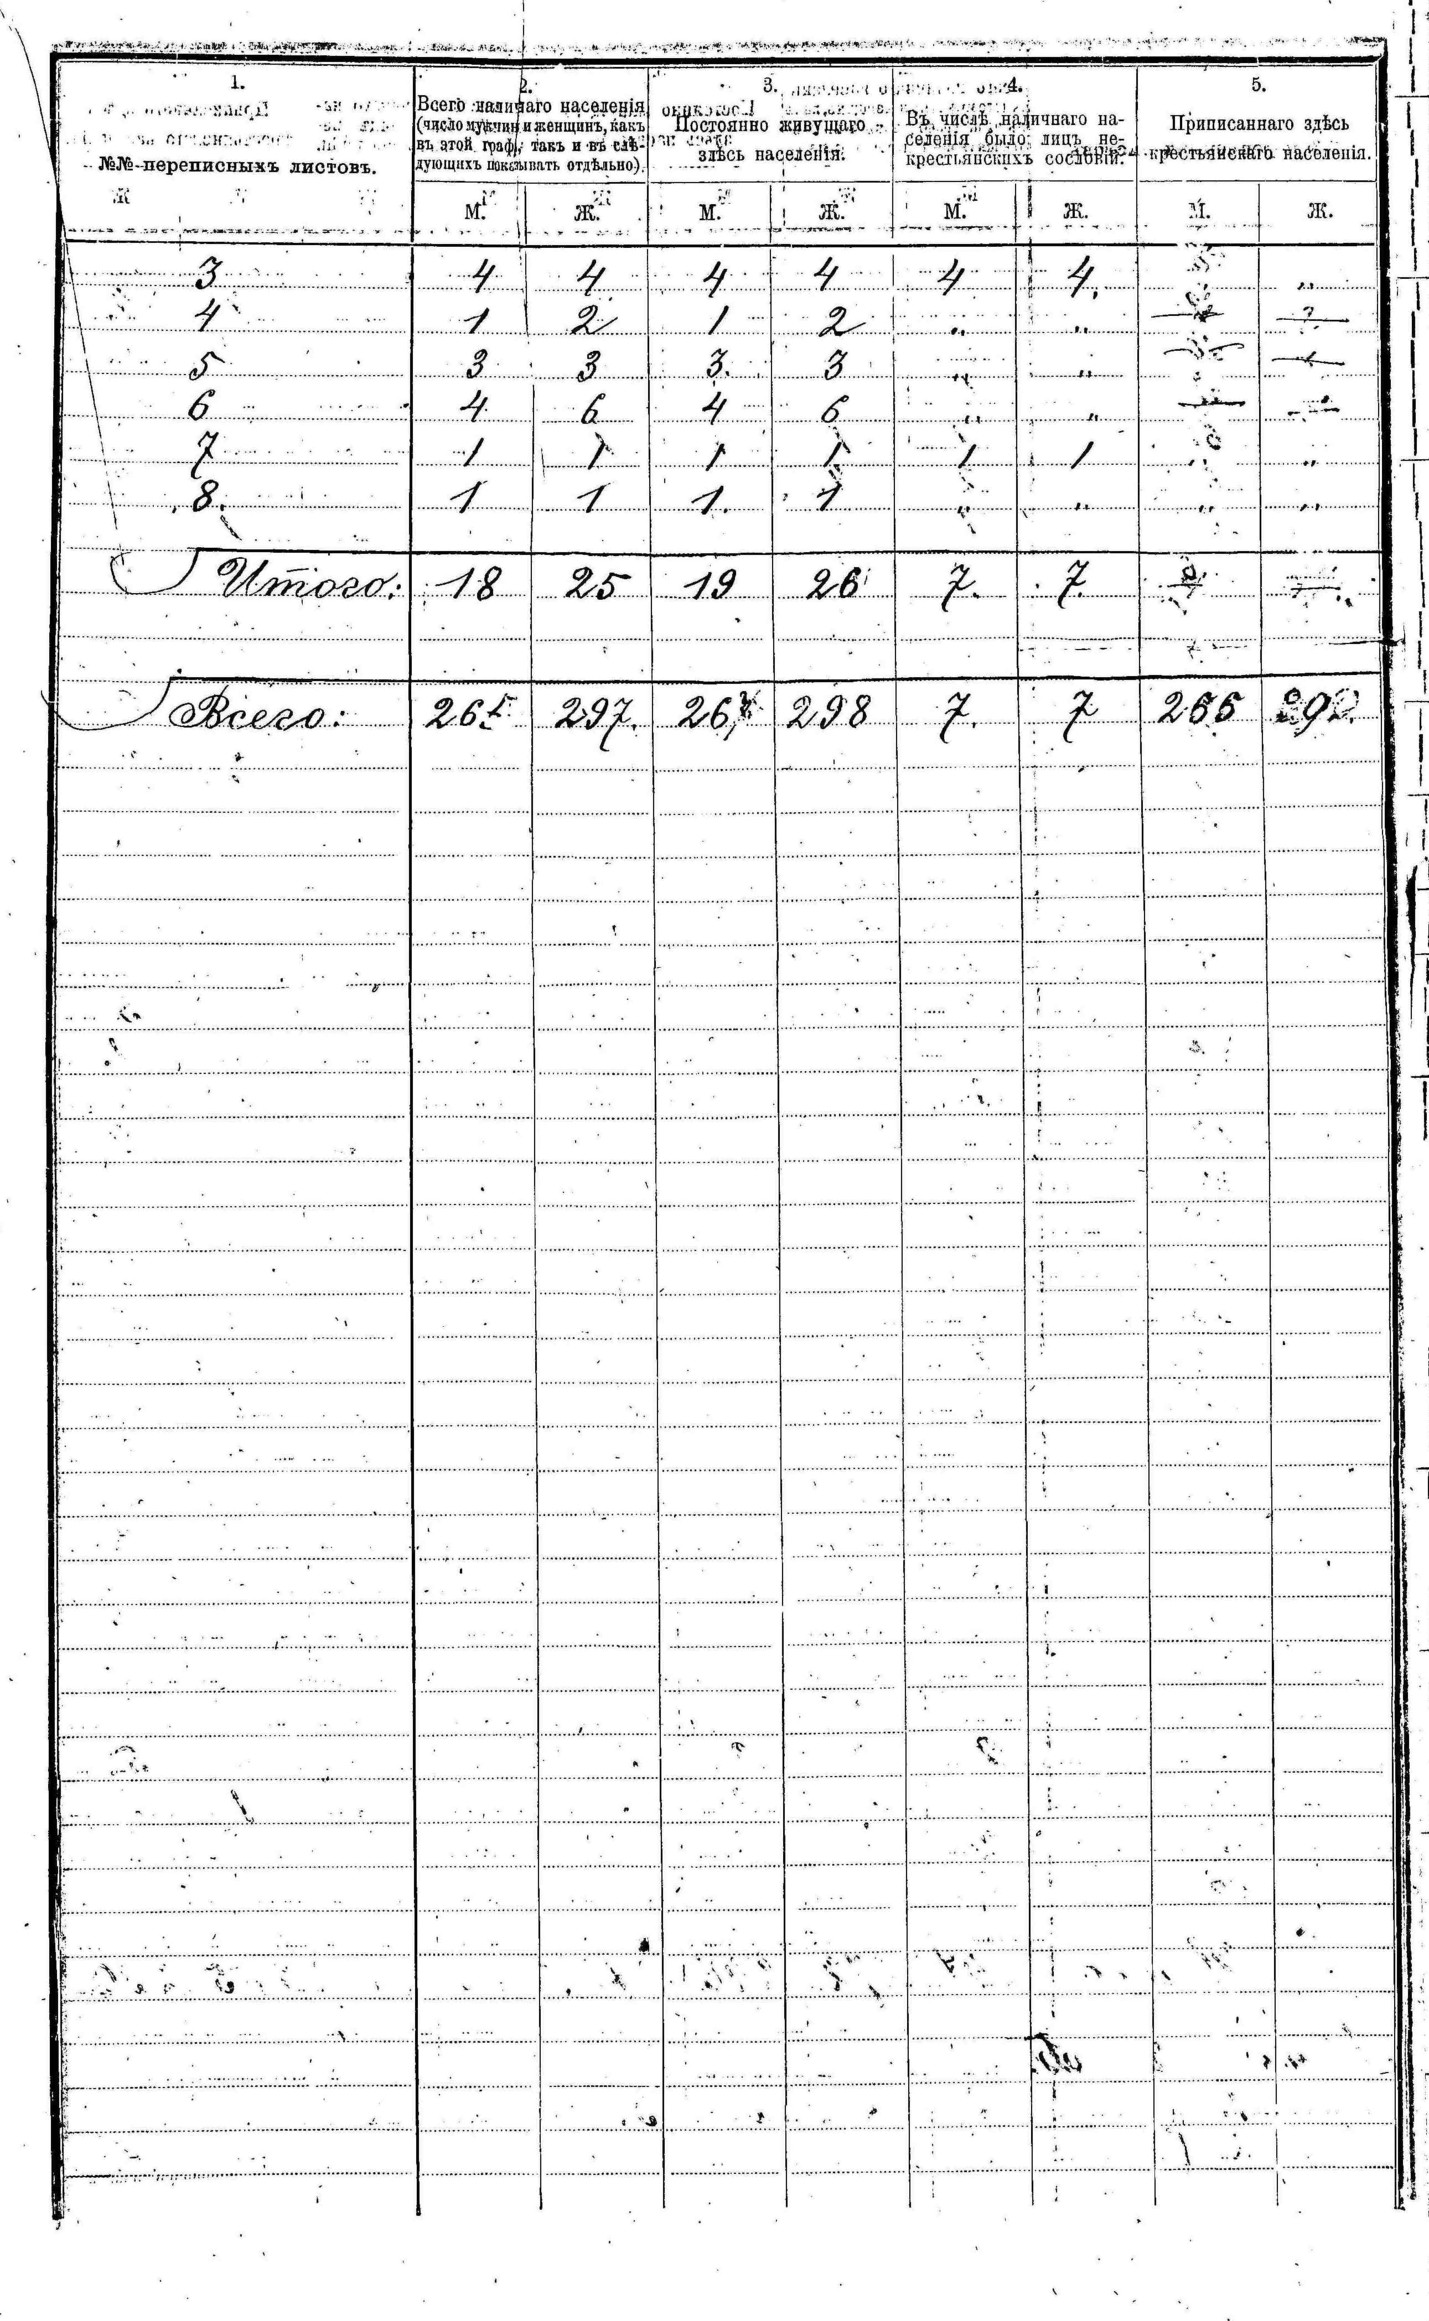 1. 2. 3. 4. 5.
№№ переписныхъ листовъ.
Всего наличнаго населенія (число мужчин и женщинъ, какъ въ этой графѣ, такъ и въ слѣдующихъ показывать отдѣльно).
Постоянно живущаго здѣсь населенія.
Въ числѣ наличнаго населенія было лицъ некрестьянскихъ сословій.
Приписаннаго здѣсь крестьянскаго населенія.
М. Ж. М. Ж. М. Ж. М. Ж.
3 4 4 4 4 4 4. „
4 1 2 1 2 „ „
5 3 3 3. 3 „ „
6 4 6 4 6 „ „
7 1 1 1 1 1 1 „ „
8. 1 1 1. 1 „ „ „ „
Итого: 18 25 19 26 7. 7.
Всего: 265 297. 267 298 7. 7 266